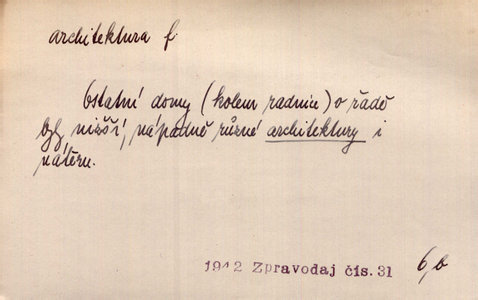 architektura f.
Ostatní domy (kolem radnice) v řadě
byly nižší, nápadně různé architektury i
nátěru.
1942 Zpravodaj čís. 31 6,b